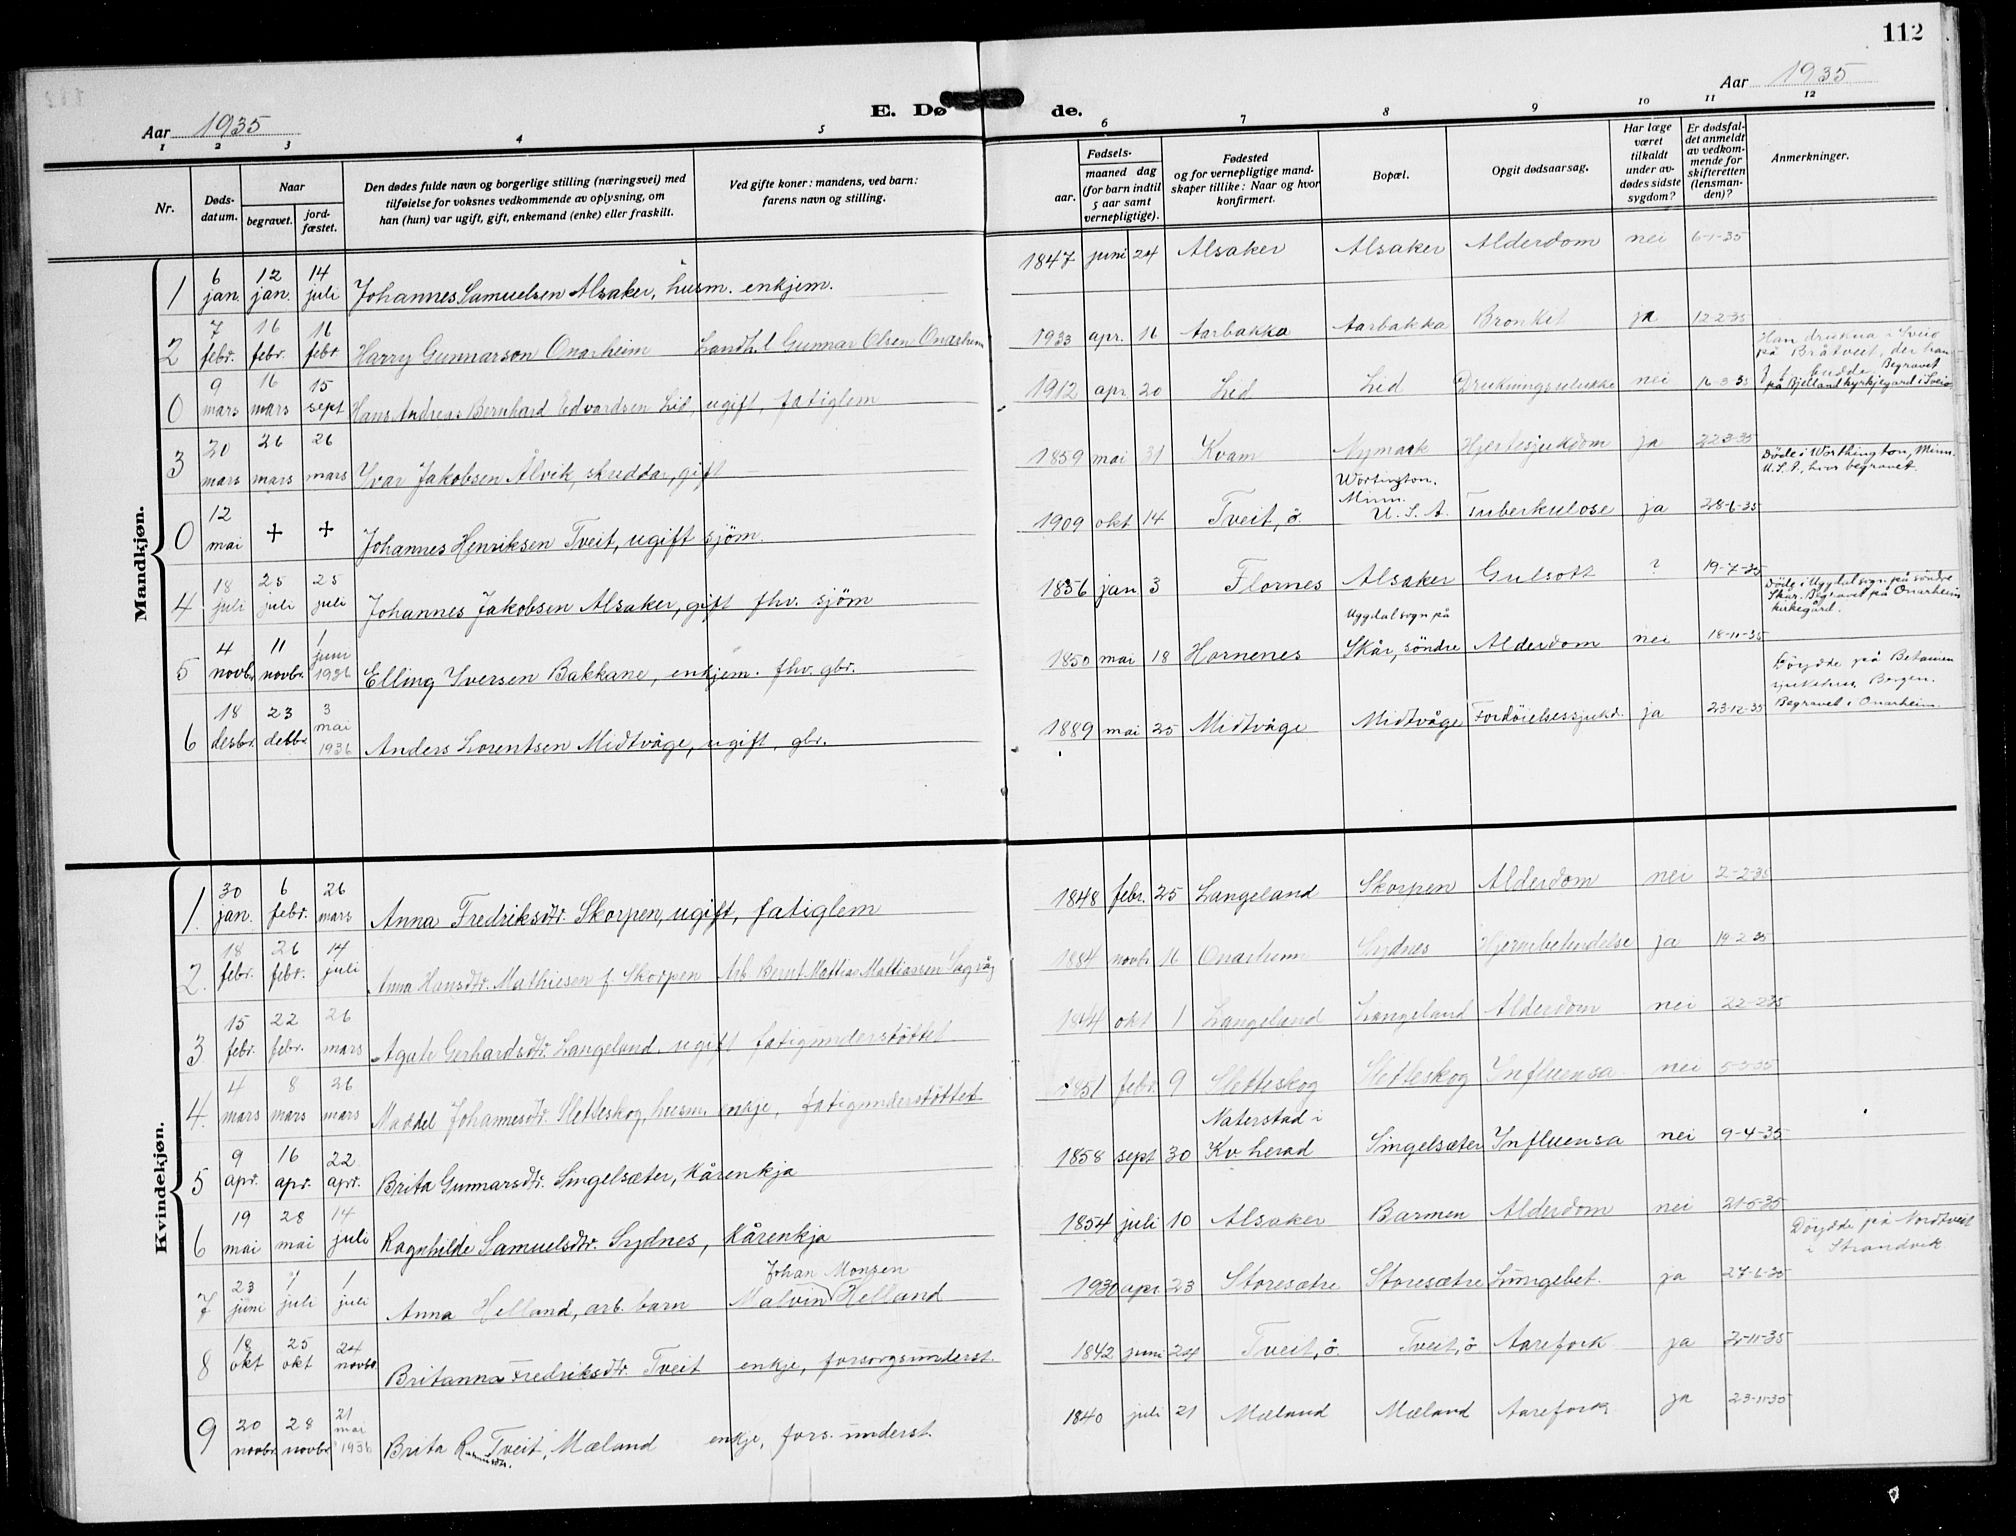 112
Aar 1935
E. Dø de.
Aar 1935
1 2 3 4 5 6 7 8 9 10 11 12
Nr.
Døds-
datum.
Naar
begravet.
jord-
fæstet.
Den dødes fulde navn og borgerlige stilling (næringsvei) med
tilføielse for voksnes vedkommende av oplysning, om
han (hun) var ugift, gift, enkemand (enke) eller fraskilt.
Ved gifte koner: mandens, ved barn:
farens navn og stilling.
Fødsels-
aar.
maaned dag
(for barn indtil
5 aar samt
vernepligtige).
Fødested
og for vernepligtige mand-
skaper tillike: Naar og hvor
konfirmert.
Bopæl.
Opgit dødsaarsag.
Har læge
været
tilkaldt
under av-
dødes sidste
sygdom?
Er dødsfal-
det anmeldt
av vedkom-
mende for
skifteretten
(lensman-
den)?
Anmerkninger.
Mandkjøn.
1 6 jan. 12 jan. 14 juli Johannes Samuelsen Alsaker, husm. enkjem. 1847 juni 24 Alsaker Alsaker Alderdom nei 6-1-35
2 7 febr. 16 febr. 16 febr Harry Gunnarson Onarheim Landh. l Gunnar Olsen Onarheim 1933 apr. 16 Aarbakka Aarbakka Bronkit ja 12-2-35
0 9 mars 16 mars 15 sept Hans Andreas Bernhard Edvardsen Lid, ugift, fatiglem 1912 apr 20 Lid Lid Drukningsulukke nei 16-3-35 Han drukna i Sveio
på Bråtveit, der han
budde. Begravet
på Bjelland kyrkjegard i Sveio
3 20 mars 26 mars 26 mars Ivar Jakobsen Ålvik, skreddar, gift 1859 mai 31 Kvam Nymark Hjertesjukdom ja 22-3-35
0 12 mai + + Johannes Henriksen Tveit, ugift sjöm. 1909 okt 14 Tveit, ö. Wortington,
Minn.
U. S. A. Tuberkulose ja 28-6-35 Döde i Worthington, Minn.
U.S.A, hvor begravet.
4 18 juli 25 juli 25 juli Johannes Jakobsen Alsaker, gift fhv. sjöm 1856 jan 3 Flornes Alsaker Gulsott ? 19-7-35
5 4 novbr. 11 novbr. 1 juni 1936 Elling Iversen Bakkane, enkjem. fhv. gbr. 1850 mai 18 Hornenes Uggdal sogn på
Skår, söndre Alderdom nei 18-11-35 Döde i Uggdal sogn på söndre
Skår. Begravet på Onarheim
kirkegård.
6 18 desbr. 23 debbr 3 mai 1936 Anders Lorentsen Midtvåge, ugift, gbr. 1889 mai 25 Midtvåge Midtvåge Fordöielsessjukd. ja 23-12-35 Döydde på Betanien
sjukehus, Bergen.
Begravet i Onarheim.
Kvindekjøn.
1. 30 jan. 6 febr. 26 mars Anna Fredriksdtr. Skorpen, ugift, fatiglem 1848 febr. 25 Langeland Skorpen Alderdom nei 2-2-35
2. 18 febr. 26 febr. 14 juli Anna Hansdtr. Mathiesen f. Skorpen Arb. Bernt Mattias Mattiassen Sagvåg 1884 novbr 16 Onarheim Sydnes Hjernebetendelse ja 19-2-35
3 15 febr. 22 febr. 26 mars Agate Gerhardsdtr. Langeland, ugift fatigunderstöttet okt 1 Langeland Langeland Alderdom nei 22-2-35
4. 4 mars 8 mars 26 mars Maddel Johannesdtr. Sletteskog, husm. enkje, fatigunderstöttet 1851 febr. 9 Sletteskog Sletteskog Influensa nei 5-3-35
5 9 apr. 16 apr. 22 apr. Brita Gunnarsdtr. Singelsæter, kårenkja 1858 sept 30 Naterstad i
Kv. herad Singelsæter Influensa nei 9-4-35
6 19 mai 28 mai 14 juli Ragnhilde Samuelsdtr. Sydnes, kårenkja 1854 juli 10 Alsaker Barmen Alderdom nei 21-5-35
7 23 juni 1 juli 1 juli Anna Helland, arb. barn Johan Monsen
Malvin Helland 1930 apr. 23 Storesætre Storesætre Lungebet. ja 27-6-35 Döydde på Nordtveit
i Strandvik
8 18 okt 25 okt 24 novbr Britanna Fredriksdtr. Tveit enkje, forsorgsunderst. 1842 juni 24 Tveit, ö Tveit, ö Aarefork. ja 2-11-35
9 20 novbr 28 novbr 21 mai 1936 Brita Rasmusdtr. Tveit, Mæland enkje, fors. underst. 1840 juli 21 Mæland Mæland Aarefork. ja 23-11-35